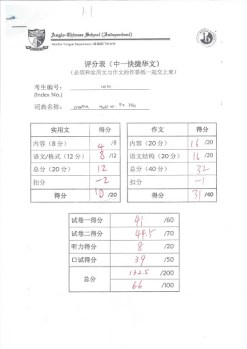 11
Anglo-Chinese School (Independent)
评分表（中一快捷华文）
（必须和实用文与作文的作答纸一起交上来）
考生编号：
(Index No.)
词典名称：
实用文 得分
内容（8分） 4 /8
语文/格式（12分） 8 /12
总分（20分） 12
扣分 -2
得分 10 /20
作文 得分
内容（20分） 16 /20
语文结构（20分） 16 /20
总分（40分） 32
扣分 -1
得分 31 /40
试卷一得分 41 /60
试卷二得分 44.5 /70
听力得分 8 /20
口试得分 39 /50
总分 132.5 /200
66 /100